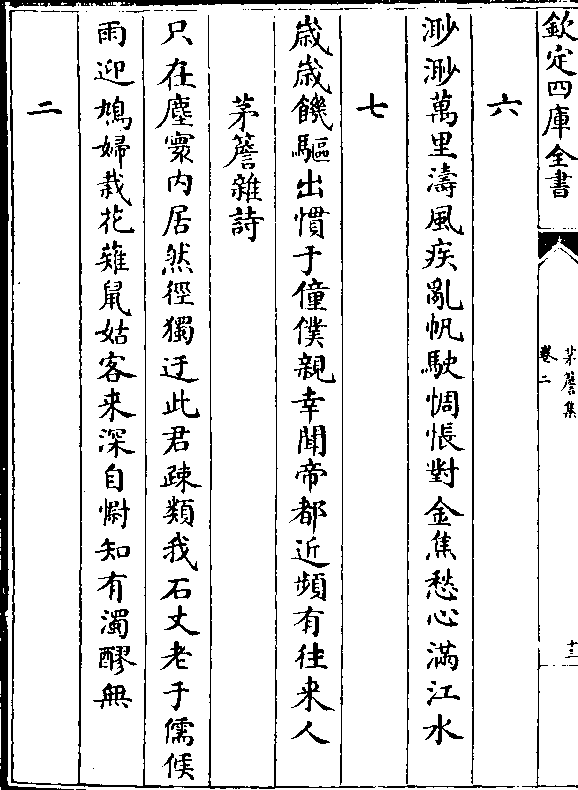 欽定四庫全書
茅簷集
卷二
十三
六
渺渺萬里濤風疾亂帆駛惆悵對金焦愁心滿江水
七
歳歳饑驅出慣于僮僕親幸聞帝都近頻有往来人
茅簷雜詩
只在塵寰内居然徑獨迂此君疎類我石丈老于儒候
雨迎鳩婦栽花薙鼠姑客来深自慰知有濁醪無
二